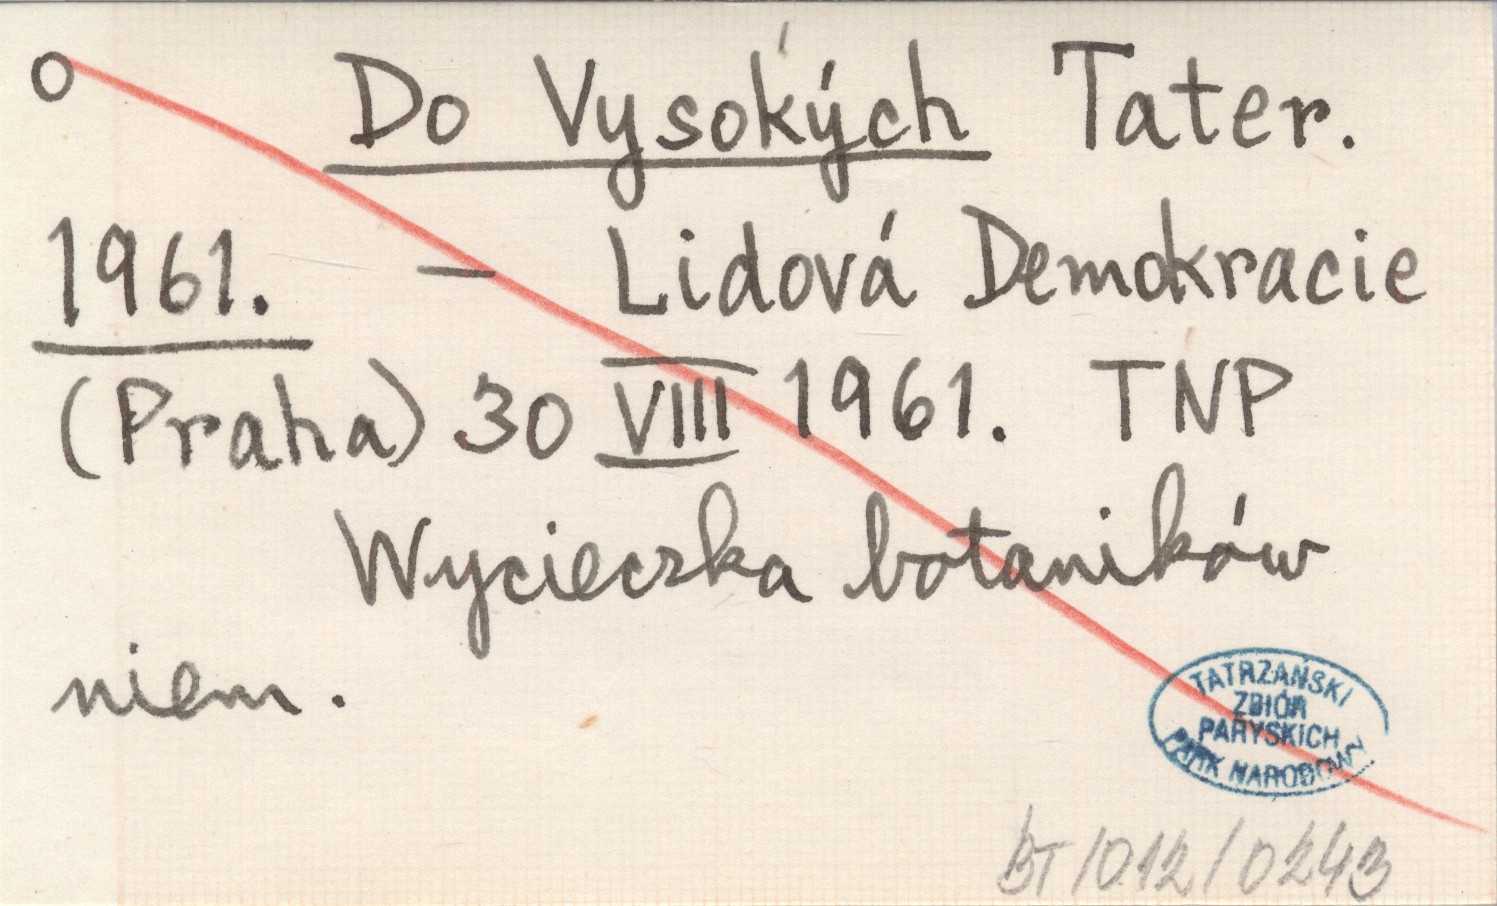 o Do Vysokých Tater.
1961. — Lidová Demokracie
(Praha) 30 VIII 1961. TNP
Wycieczka botaników
niem.
TATRZAŃSKI
ZBIÓR
PARYSKICH
PARK NARODOWY
BT/012/0243